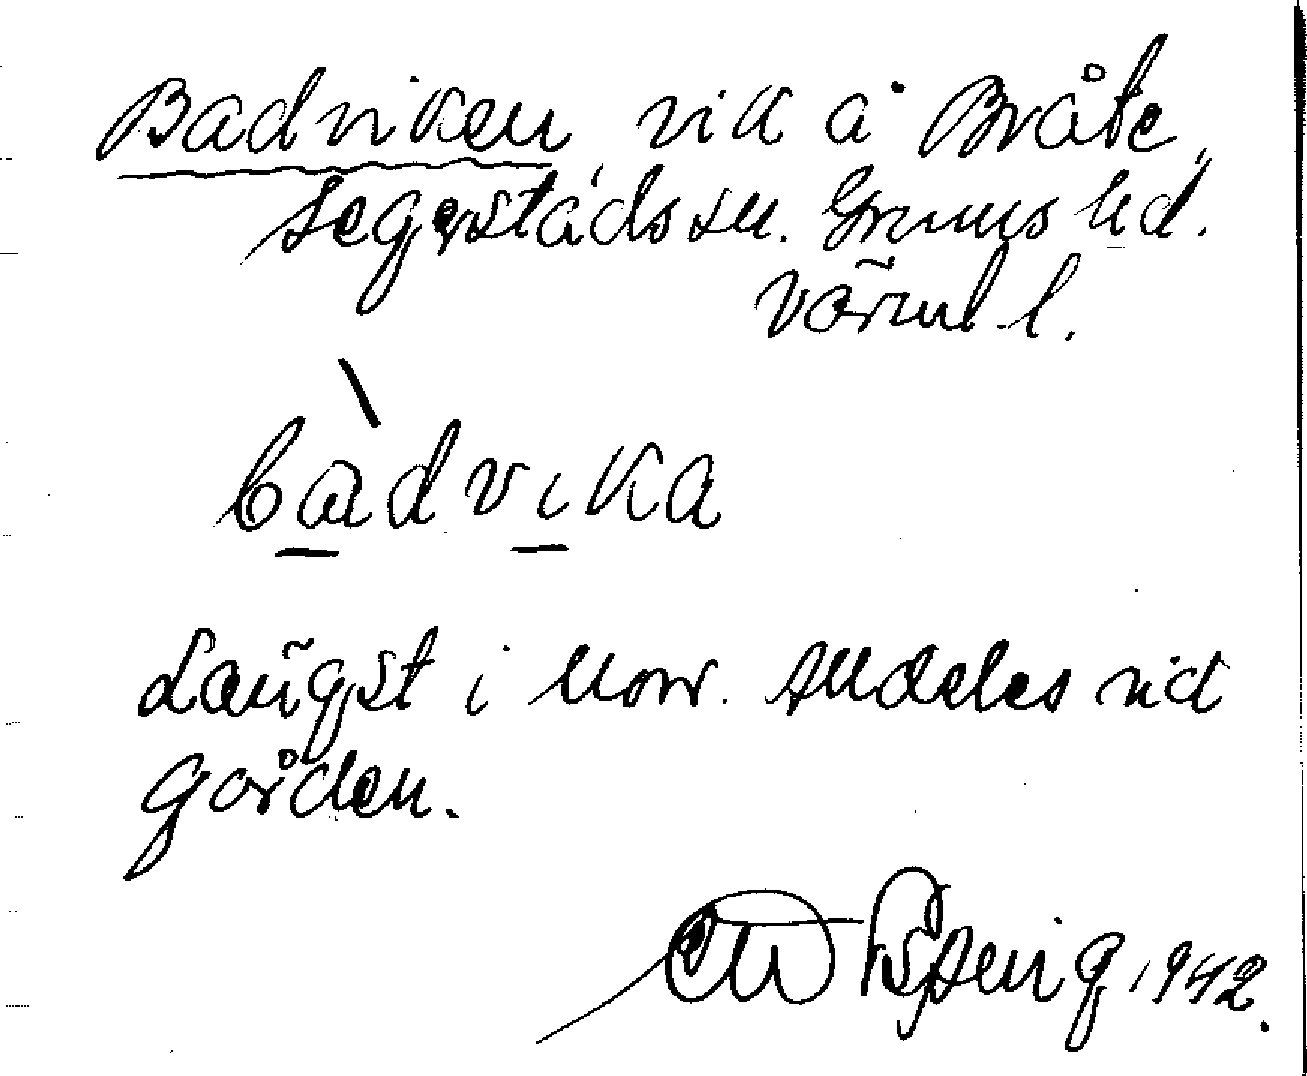 Badviken vik å Bråte,
Segerstads sn. Grums hd.
Värml. l.
bàdvika
Längst i norr. Alldeles vid
gården.
1942.